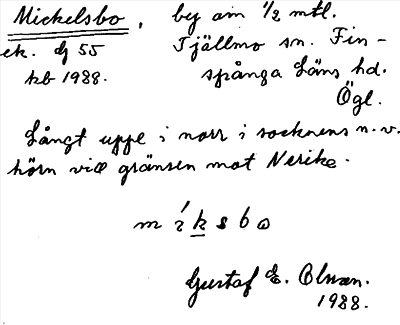 Mickelsbo, by om 1/2 mtl.
ek. bl 55 Tjällmo sn. Fin-
kb 1988. spånga Läns hd.
Ögl.
Långt uppe i norr i socknens n.v.
hörn vid gränsen mot Nerike.
m í k s b o
Gustaf E. Olsson.
1988.